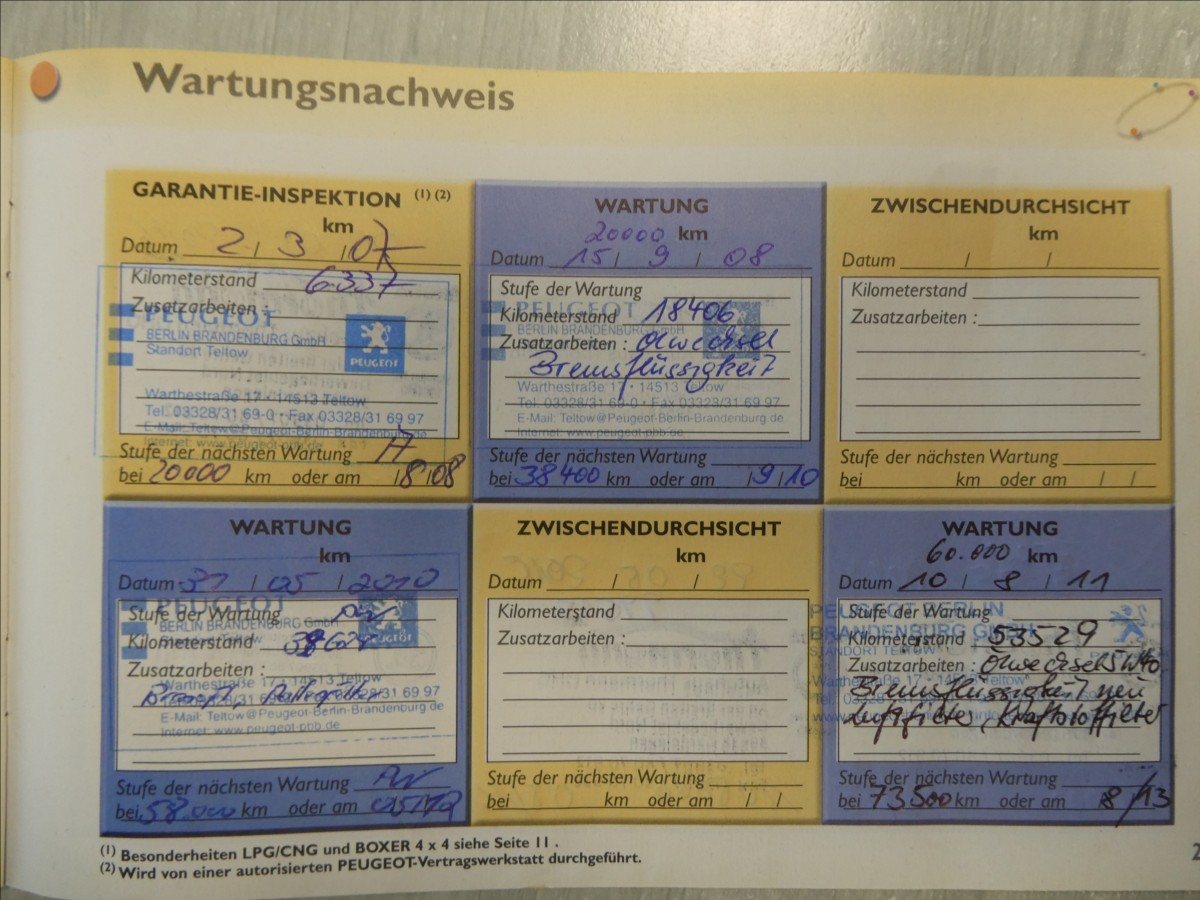 Wartungsnachweis
GARANTIE-INSPEKTION (1) (2)
km
Datum 2 / 3 / 07
Kilometerstand 6337
Zusatzarbeiten :
PEUGEOT
BERLIN BRANDENBURG GmbH
Standort Teltow
PEUGEOT
Warthestraße 17 • 14513 Teltow
Tel. 03328/31 69-0 • Fax 03328/31 69 97
E-Mail: Teltow@Peugeot-Berlin-Brandenburg.de
Internet: www.peugeot-pbb.de
Stufe der nächsten Wartung A
bei 20000 km oder am /8/08
WARTUNG
20000 km
Datum 15 / 9 / 08
Stufe der Wartung
PEUGEOT
Kilometerstand 18406
BERLIN BRANDENBURG GmbH
Zusatzarbeiten : Ölwechsel
Bremsflüssigkeit
Warthestraße 17 • 14513 Teltow
Tel. 03328/31 69-0 • Fax 03328/31 69 97
E-Mail: Teltow@Peugeot-Berlin-Brandenburg.de
Internet: www.peugeot-pbb.de
Stufe der nächsten Wartung
bei 38400 km oder am /9/10
ZWISCHENDURCHSICHT
km
Datum / /
Kilometerstand
Zusatzarbeiten :
Stufe der nächsten Wartung
bei km oder am / /
WARTUNG
km
Datum 31 / 05 / 2010
Stufe der Wartung
PEUGEOT
BERLIN BRANDENBURG GmbH
Kilometerstand
PEUGEOT
Zusatzarbeiten :
Warthestraße 17 • 14513 Teltow
E-Mail: Teltow@Peugeot-Berlin-Brandenburg.de
Internet: www.peugeot-pbb.de
Stufe der nächsten Wartung
bei 58.000 km oder am 05/12
ZWISCHENDURCHSICHT
km
Datum / /
Kilometerstand
Zusatzarbeiten :
Stufe der nächsten Wartung
bei km oder am / /
WARTUNG
60.000 km
Datum 10 / 8 / 11
Stufe der Wartung
PEUGEOT BERLIN
BRANDENBURG GMBH
Kilometerstand : 53529
STANDORT TELTOW
Zusatzarbeiten : Ölwechsel 5W40
Warthestraße 17 • 14513 Teltow
Bremsflüssigkeit neu
Luftfilter, Kraftstoffilter
Stufe der nächsten Wartung
bei 73500 km oder am 8/13
(1) Besonderheiten LPG/CNG und BOXER 4 x 4 siehe Seite 11 .
(2) Wird von einer autorisierten PEUGEOT-Vertragswerkstatt durchgeführt.
2